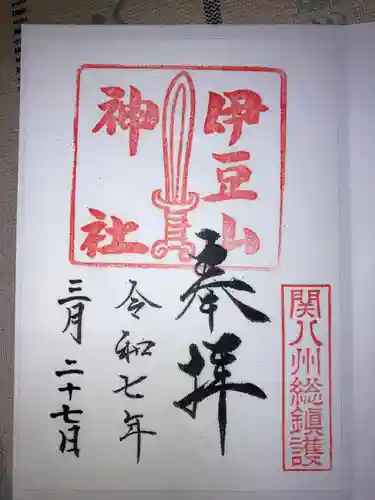 伊豆山
神社
関八州総鎮護
奉拝
令和七年
三月二十七日